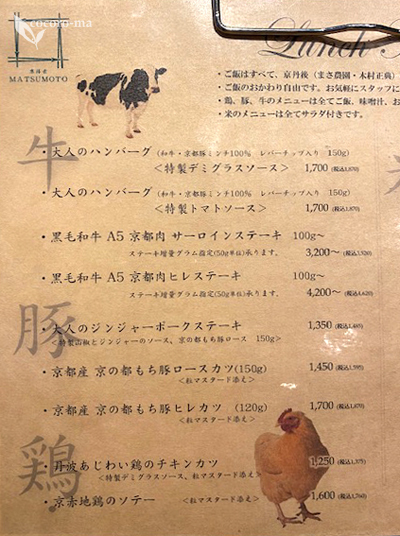 cocoro-ma
Lunch
MATSUMOTO
・ご飯はすべて、京丹後（まさ農園・木村正典）
・ご飯のおかわり自由です。お気軽にスタッフに
・鶏、豚、牛のメニューは全てご飯、味噌汁、お
・米のメニューは全てサラダ付きです。
牛
・大人のハンバーグ（和牛・京都豚ミンチ100％ レバーチップ入り 150g）
＜特製デミグラスソース＞ 1,700 (税込1,870)
・大人のハンバーグ（和牛・京都豚ミンチ100％ レバーチップ入り 150g）
＜特製トマトソース＞ 1,700 (税込1,870)
・黒毛和牛 A5 京都肉 サーロインステーキ 100g～
ステーキ増量グラム指定(50g単位)承ります。 3,200～ (税込3,520)
・黒毛和牛 A5 京都肉ヒレステーキ 100g～
ステーキ増量グラム指定(50g単位)承ります。 4,200～ (税込4,620)
豚
・大人のジンジャーポークステーキ 1,350 (税込1,485)
＜特製山椒とジンジャーのソース、京の都もち豚ロース 150g＞
・京都産 京の都もち豚ロースカツ(150g) 1,450 (税込1,595)
＜粒マスタード添え＞
・京都産 京の都もち豚ヒレカツ (120g) 1,700 (税込1,870)
＜粒マスタード添え＞
鶏
・丹波あじわい鶏のチキンカツ 1,250 (税込1,375)
＜特製デミグラスソース、粒マスタード添え＞
・京赤地鶏のソテー ＜粒マスタード添え＞ 1,600 (税込1,760)